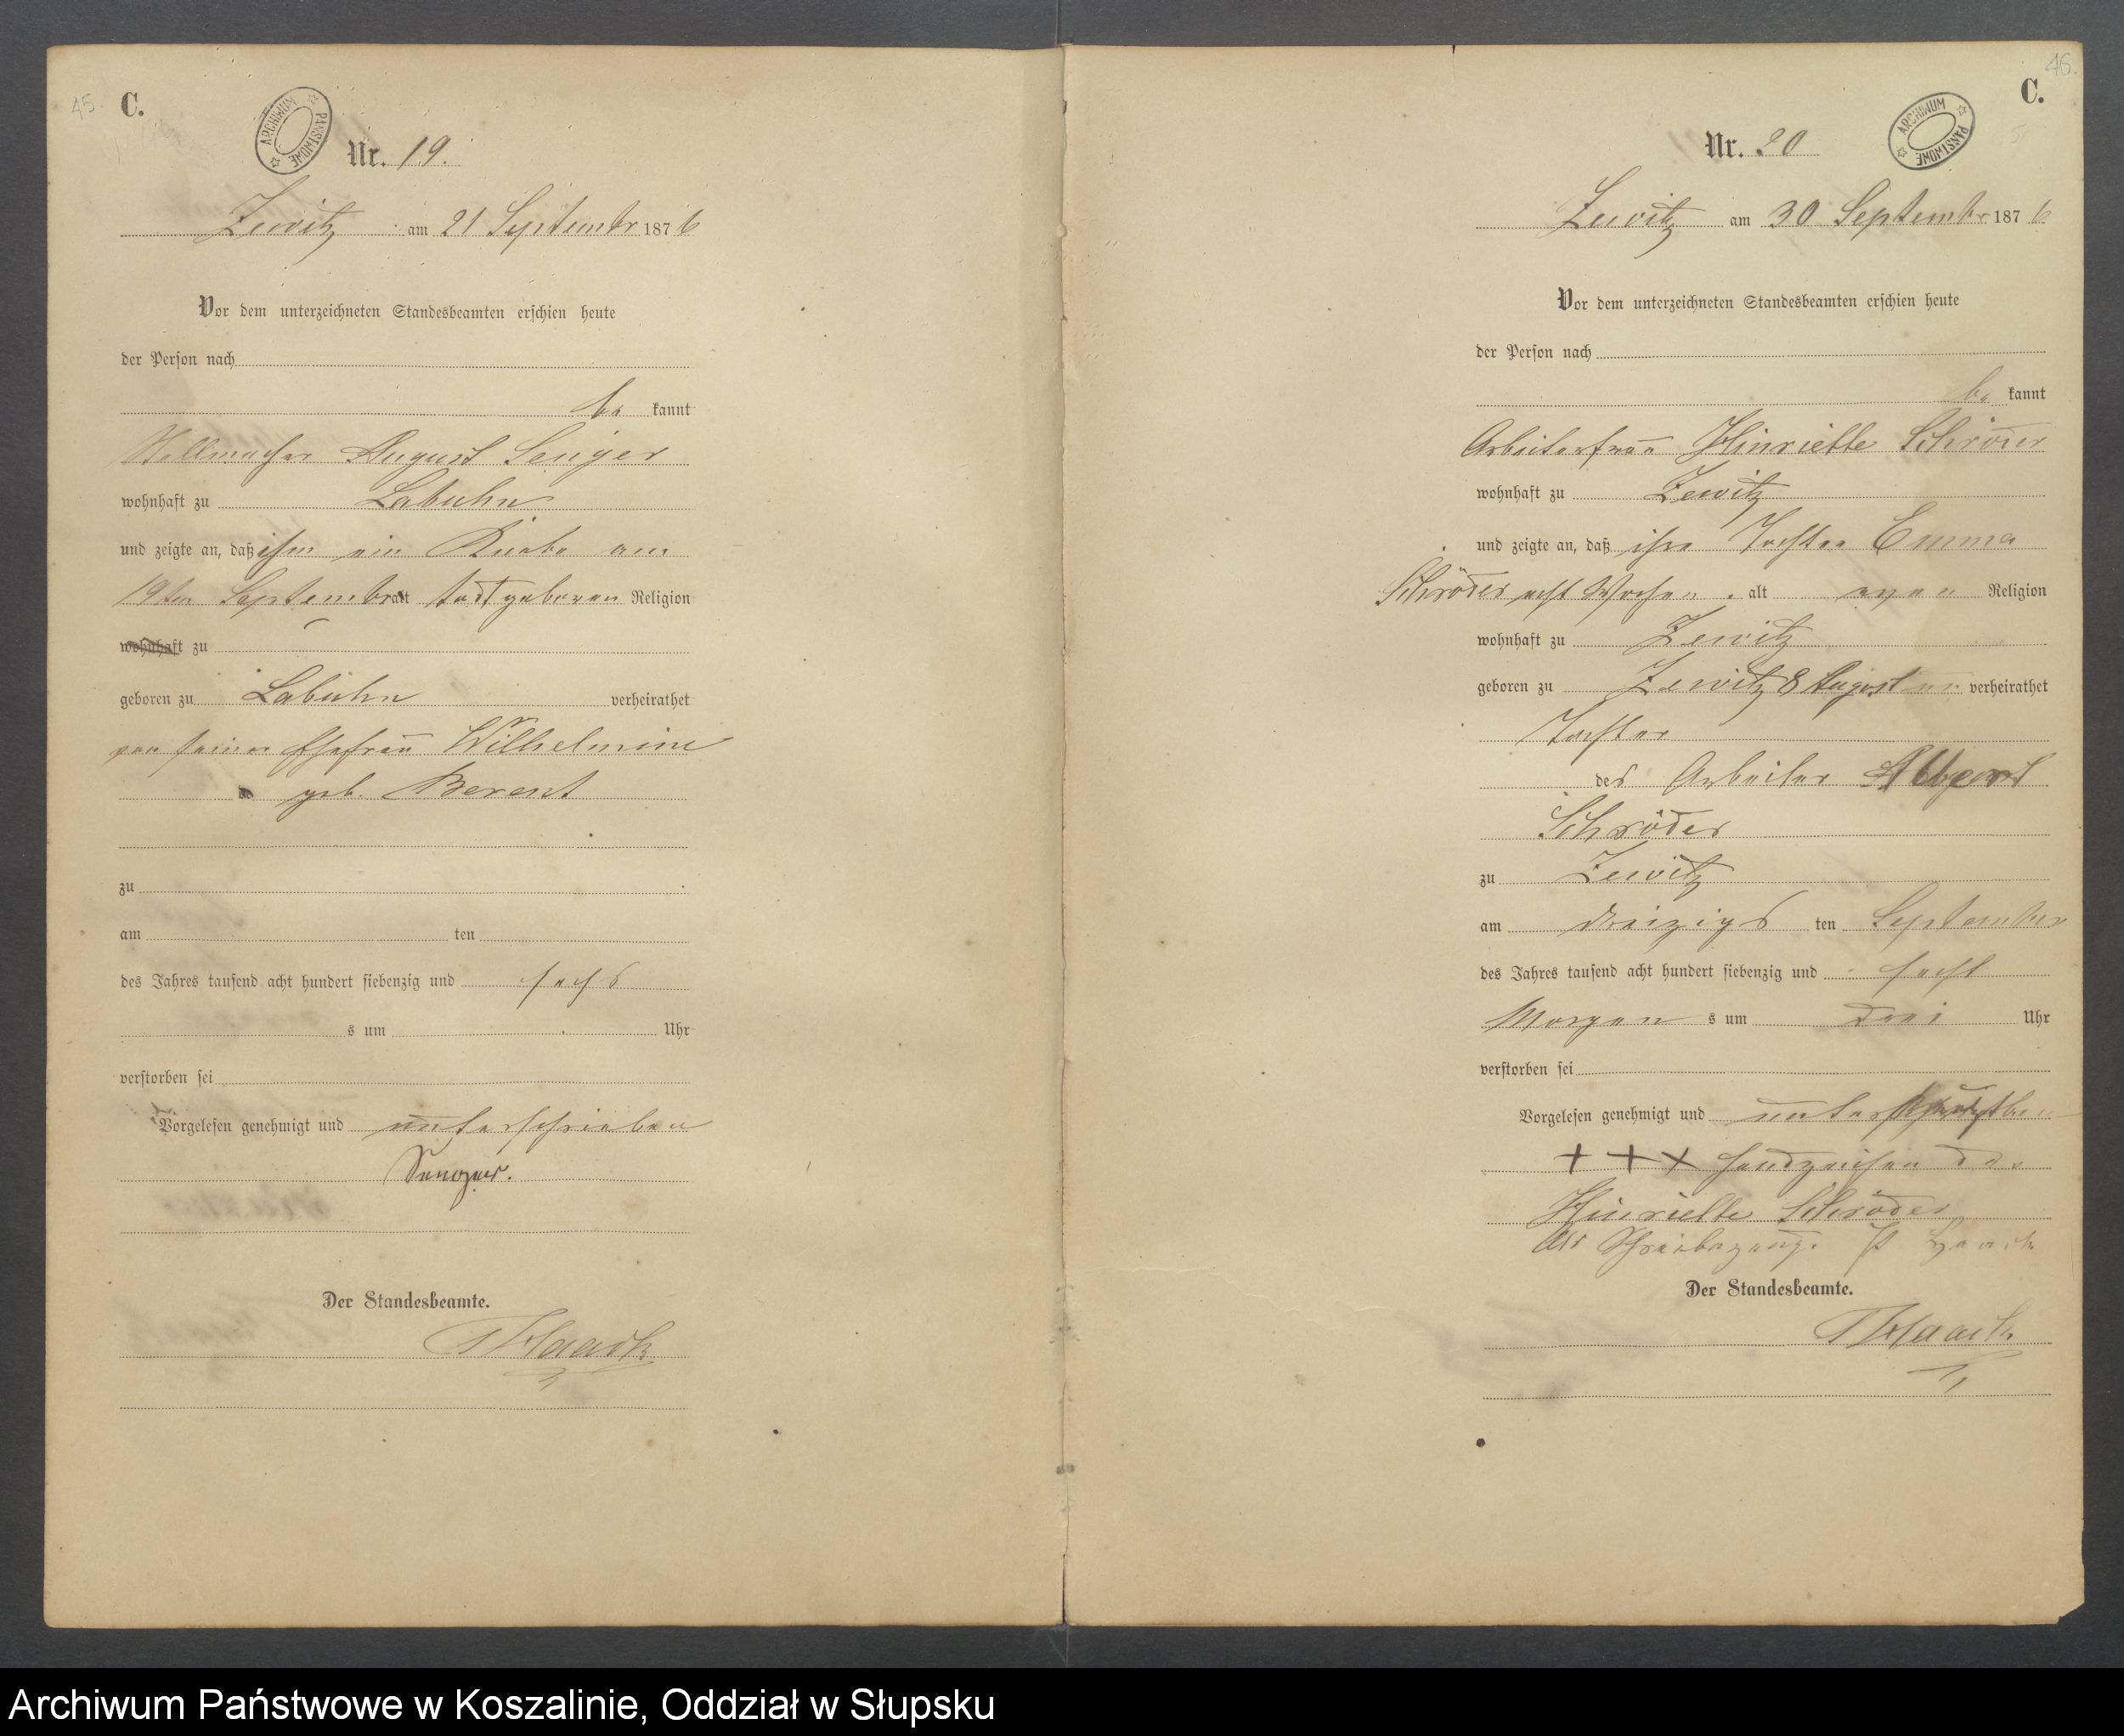 45.
C.
ARCHIWUM PAŃSTWOWE
Nr. 19.
Zewitz am 21 Septembr 1876
Vor dem unterzeichneten Standesbeamten erschien heute
der Person nach
be kannt
Stellmacher August Senger
wohnhaft zu Labuhn
und zeigte an, daß ihm ein Knabe am
19ten Septembr alt todtgeboren Religion
wohnhaft zu
geboren zu Labuhn verheirathet
von seiner Ehefrau Wilhelmine
geb. Berent
zu
am ten
des Jahres tausend acht hundert siebenzig und sechs
s um Uhr
verstorben sei
Vorgelesen genehmigt und unterschrieben
Senger.
Der Standesbeamte.
Haack
46.
C.
ARCHIWUM PAŃSTWOWE
Nr. 20
Zewitz am 30 Septembr 1876
Vor dem unterzeichneten Standesbeamten erschien heute
der Person nach
be kannt
Arbeiterfrau Hinriette Schröder
wohnhaft zu Zewitz
und zeigte an, daß ihre Tochter Emma
Schröder acht Wochen alt evan Religion
wohnhaft zu Zewitz
geboren zu Zewitz 8 August un verheirathet
Tochter
des Arbeiter Albert
Schröder
zu Zewitz
am dreizigs ten September
des Jahres tausend acht hundert siebenzig und sechs
Morgen s um drei Uhr
verstorben sei
Vorgelesen genehmigt und
+ + + Handzeichen der
Hinriette Schröder
Als Schreibezeuge Haack
Der Standesbeamte.
Haack
Archiwum Państwowe w Koszalinie, Oddział w Słupsku